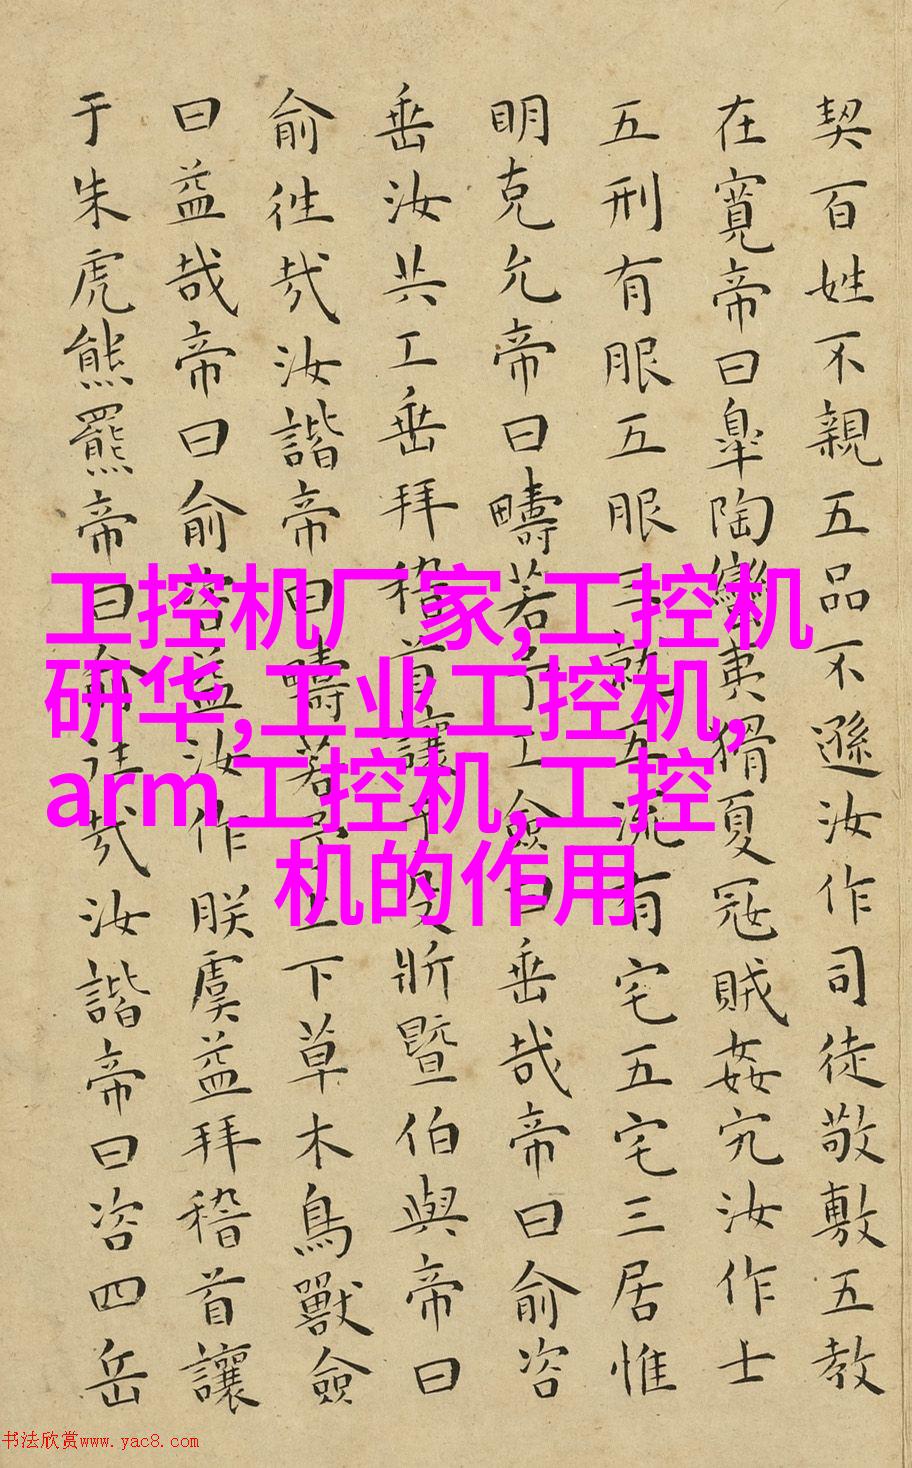 契百姓不親五品不遜汝作司徒敬敷五教
在寬帝曰皐陶蠻夷猾夏冦賊姦宄汝作士
五刑有服五服三就五流有宅五宅三居惟
明克允帝曰疇若予工僉曰垂哉帝曰俞咨
垂汝共工垂拜稽首讓于殳斨暨伯與帝曰
俞往哉汝諧帝曰疇若予上下草木鳥獸僉
曰益哉帝曰俞咨益汝作朕虞益拜稽首讓
于朱虎熊羆帝曰俞往哉汝諧帝曰咨四岳
工控机厂家,工控机
研华,工业工控机,
arm工控机,工控
机的作用
书法欣赏www.yac8.com